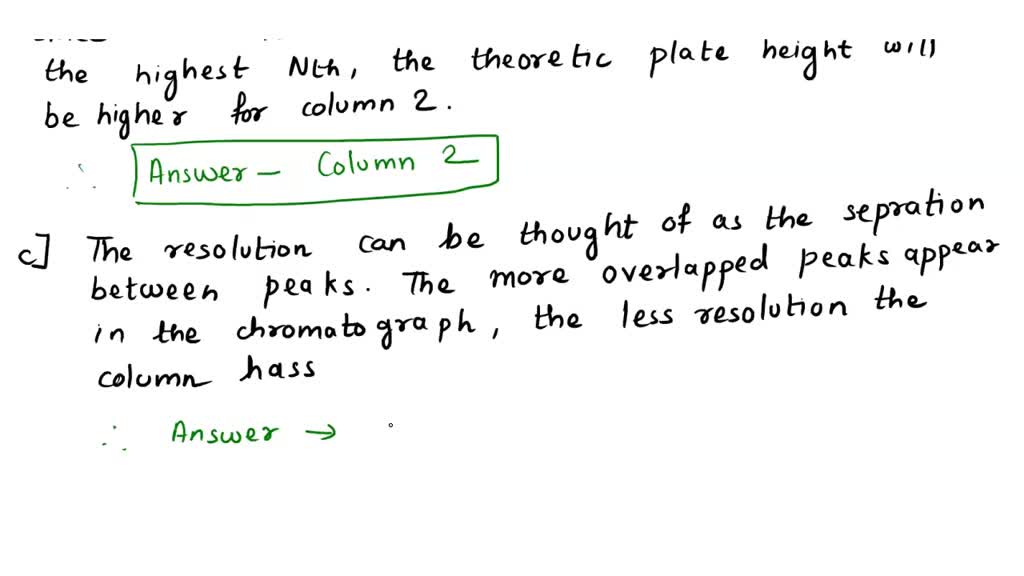 the highest Nth, the theoretic plate height will
be higher for column 2.
∴ Answer – Column 2
c] The resolution can be thought of as the sepration
between peaks. The more overlapped peaks appear
in the chromatograph, the less resolution the
column hass
∴ Answer →